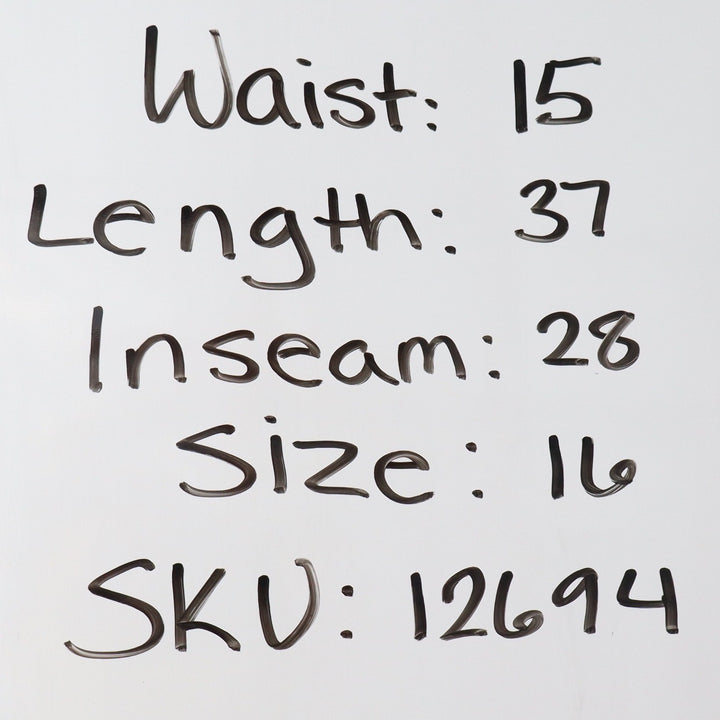 Waist: 15
Length: 37
Inseam: 28
Size: 16
SKU: 12694